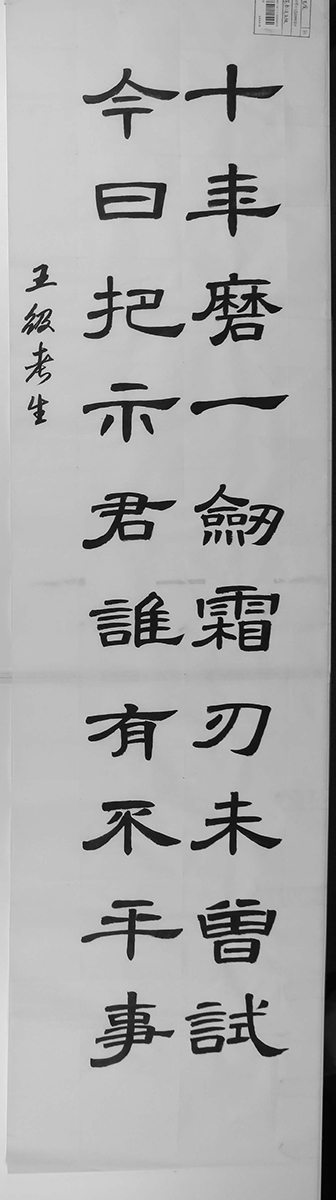 十年磨一劒霜刃未曾試
今日把示君誰有不平事
五級考生